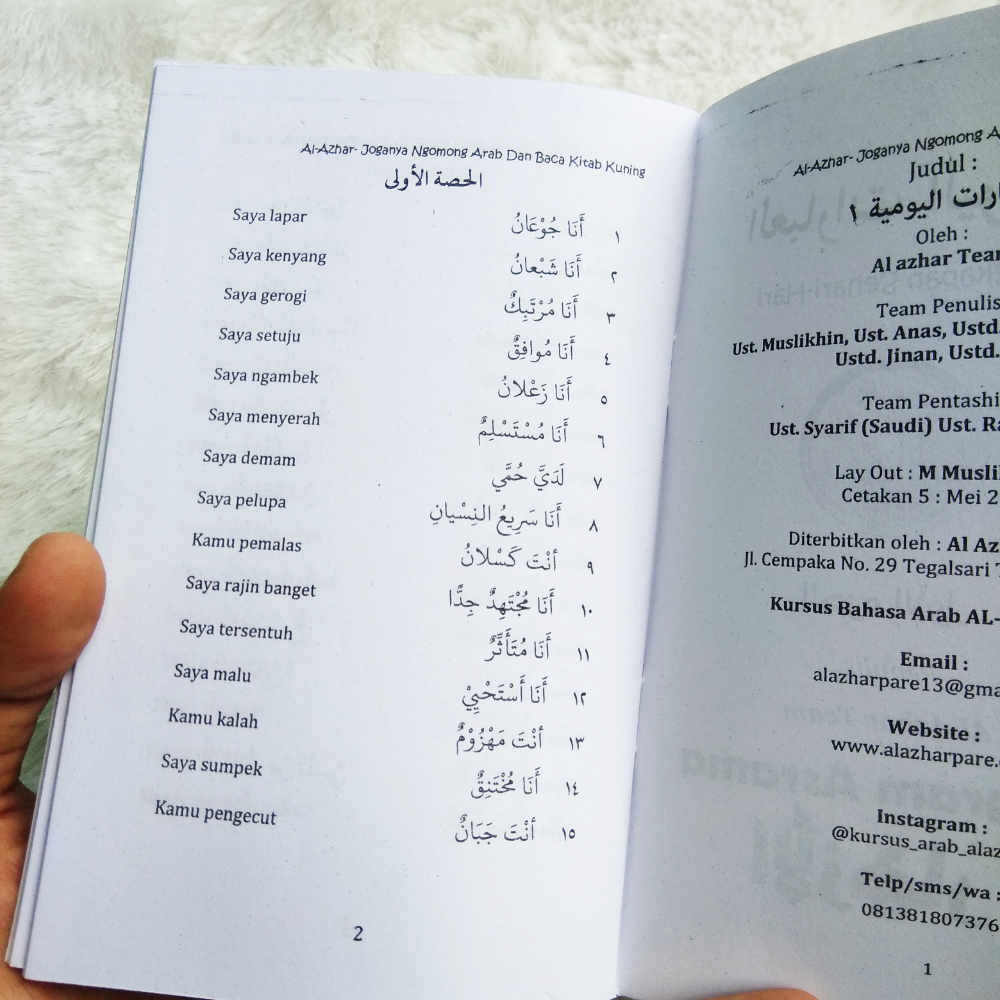 Al-Azhar- Joganya Ngomong Arab Dan Baca Kitab Kuning
الحصة الأولى
Saya lapar أَنَا جُوْعَانُ ١
Saya kenyang أَنَا شَبْعانُ ٢
Saya gerogi أَنَا مُرْتَبِكٌ ٣
Saya setuju أَنَا مُوافِقٌ ٤
Saya ngambek أَنَا زَعْلانُ ٥
Saya menyerah أَنَا مُسْتَسْلِمٌ ٦
Saya demam لَدَيَّ حُمَّي ٧
Saya pelupa أَنَا سَرِيعُ النِسْيانِ ٨
Kamu pemalas أنْتَ كَسْلانُ ٩
Saya rajin banget أَنَا مُجْتَهِدٌ جِدًّا ١٠
Saya tersentuh أَنَا مُتَأَثِّرٌ ١١
Saya malu أَنَا أَسْتَحْيِيْ ١٢
Kamu kalah أنْتَ مَهْزُوْمٌ ١٣
Saya sumpek أَنَا مُخْتَنِقٌ ١٤
Kamu pengecut أنْتَ جَبَانٌ ١٥
2
Al-Azhar- Joganya Ngomong A
Judul :
ارات اليومية ١
Oleh :
Al azhar Tean
Team Penulis
Ust. Muslikhin, Ust. Anas, Ustd.
Ustd. Jinan, Ustd.
Team Pentashi
Ust. Syarif (Saudi) Ust. Ra
Lay Out : M Musli
Cetakan 5 : Mei 2
Diterbitkan oleh : Al Az
Jl. Cempaka No. 29 Tegalsari T
Kursus Bahasa Arab AL-
Email :
alazharpare13@gma
Website :
www.alazharpare.
Instagram :
@kursus_arab_alaz
Telp/sms/wa :
081381807376
1